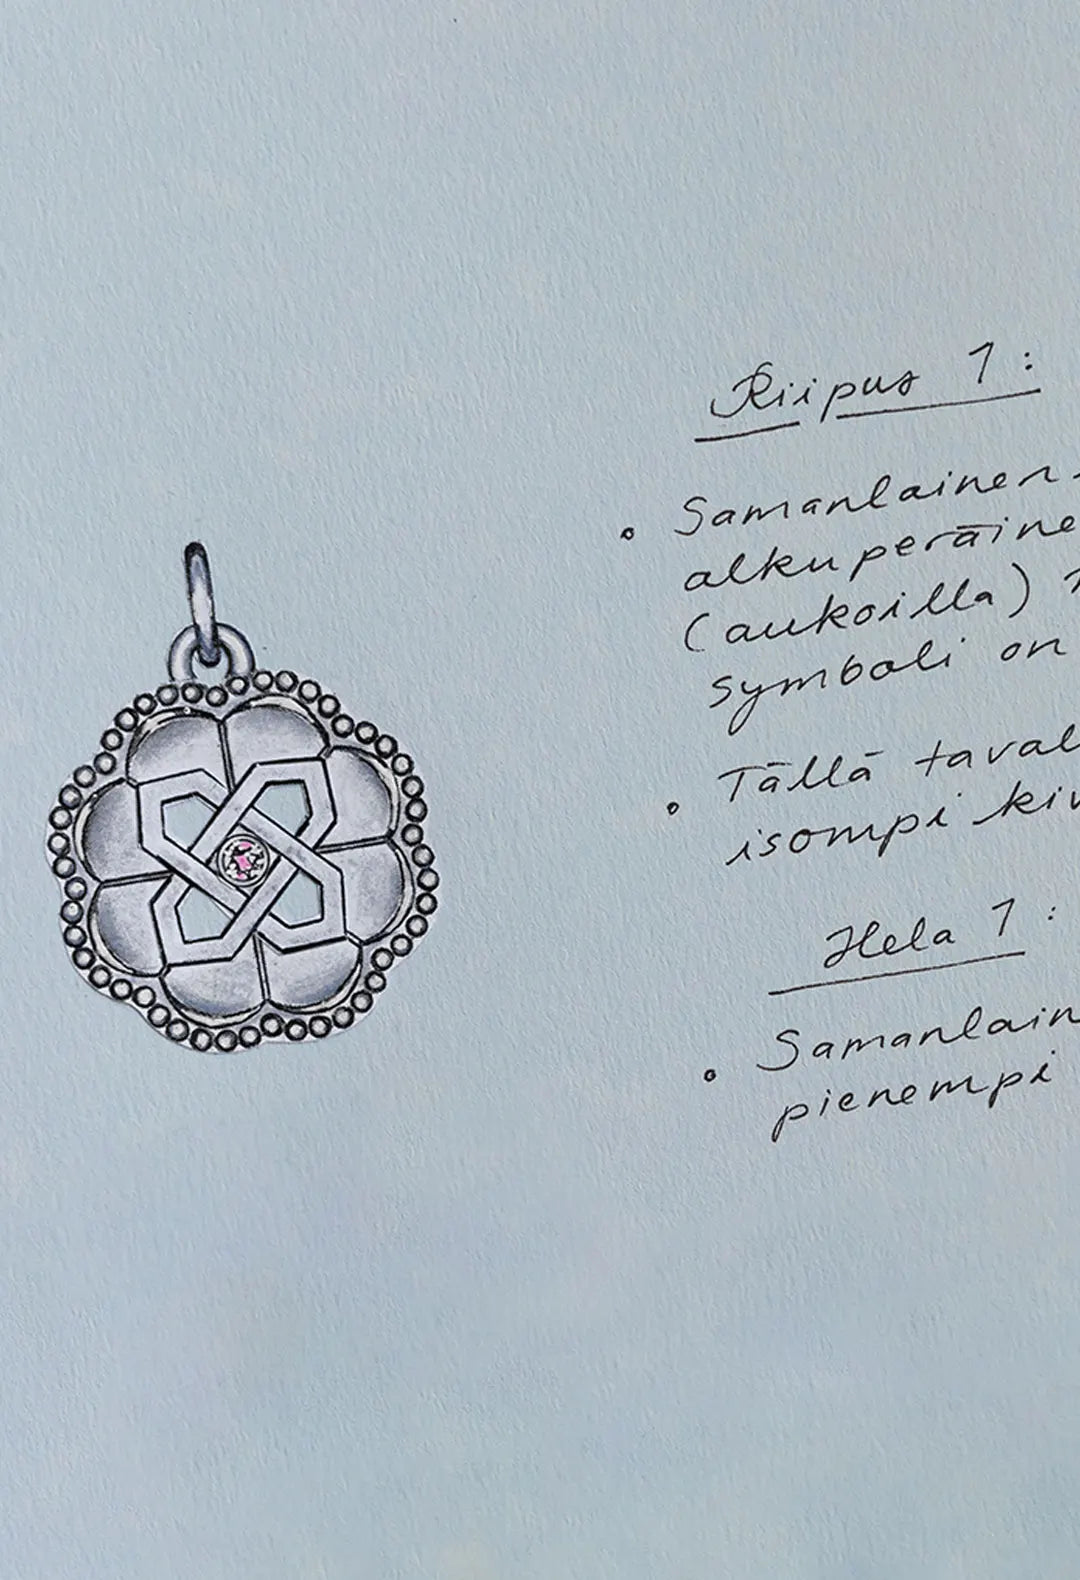 Riipus 1:
Samanlainen
alkuperäine
(aukoilla)
symboli on
Tällä taval
isompi kiv
Hela 1:
Samanlain
pienempi